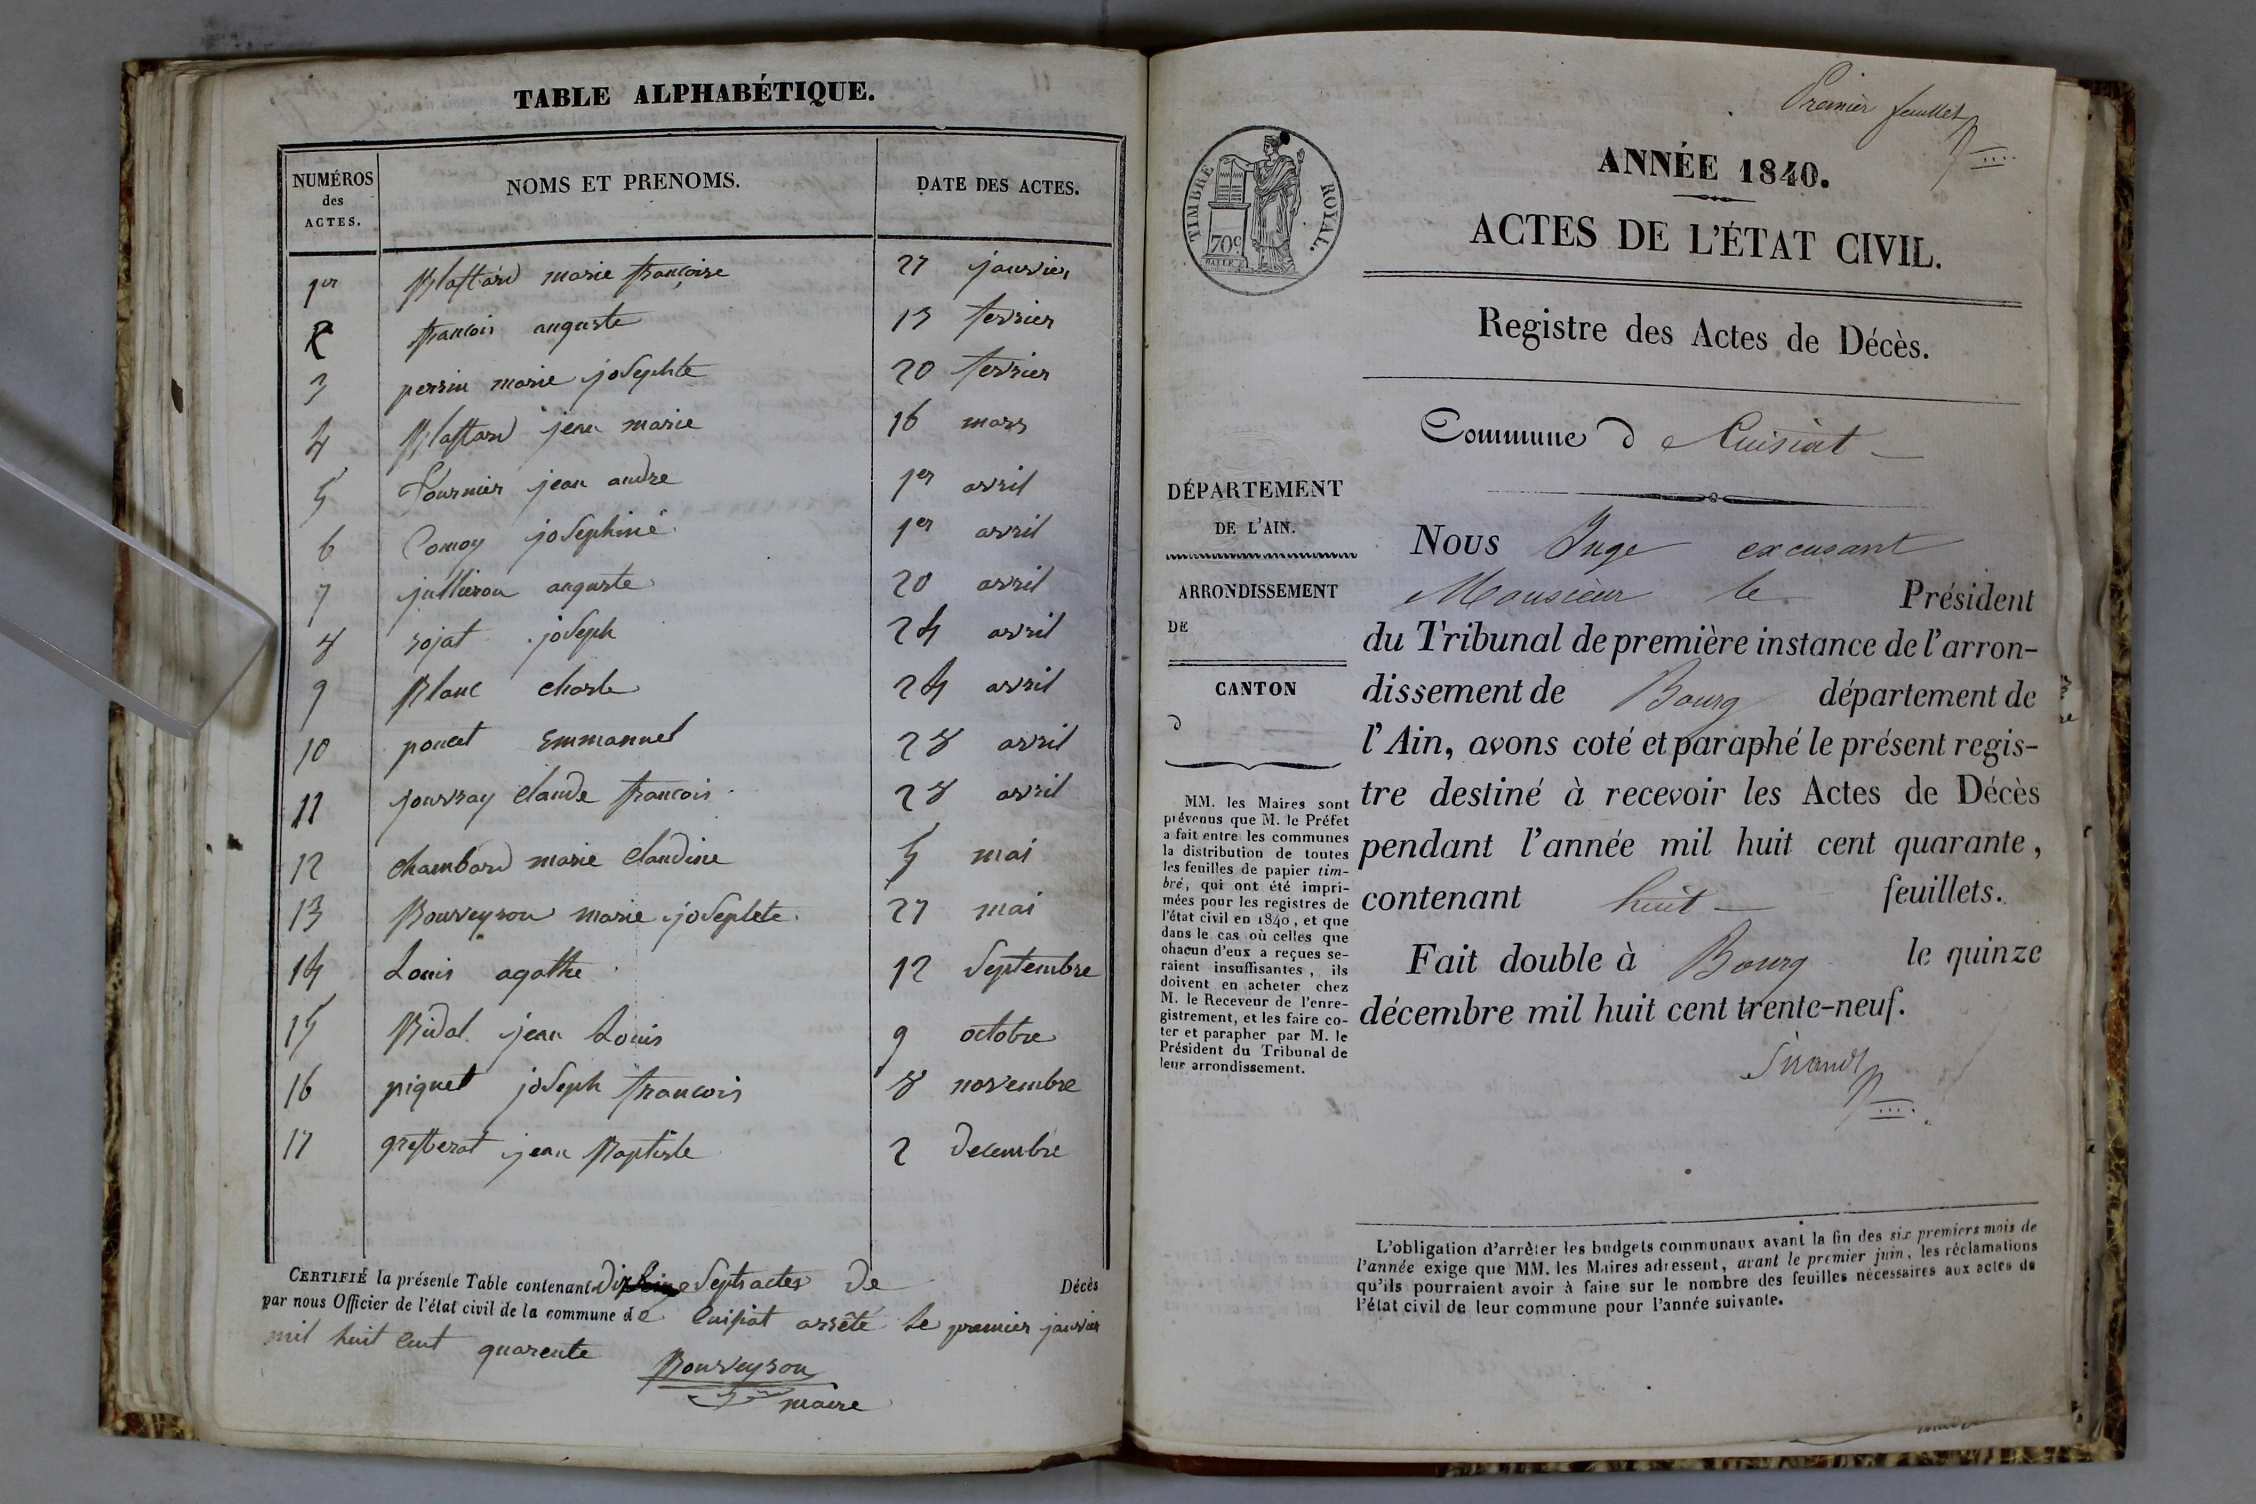 TABLE ALPHABÉTIQUE.
NUMÉROS des ACTES. NOMS ET PRENOMS. DATE DES ACTES.
1er Blattard marie françoise 27 janvier
2 francois auguste 13 fevrier
3 perrin marie josephte 20 fevrier
4 Blattard jean marie 16 mars
5 Fournier jean andre 1er avril
6 Comoy josephine 1er avril
7 jullieron auguste 20 avril
8 rojat joseph 24 avril
9 Blanc charle 24 avril
10 poncet Emmanuel 28 avril
11 jouvray claude francois 28 avril
12 chambard marie claudine 5 mai
13 Bouveyron marie josephte 27 mai
14 Louis agathe 12 Septembre
15 Bidal jean Louis 9 octobre
16 piquet joseph francois 8 novembre
17 jean Baptiste 2 decembre
CERTIFIÉ la présente Table contenant Dix Sept actes De Décès
par nous Officier de l'état civil de la commune de Cuisiat arrêté Le premier janvier
mil huit Cent quarente
Bouveyron
maire
Premier feuillet
TIMBRE ROYAL.
70c
ANNÉE 1840.
ACTES DE L'ÉTAT CIVIL.
Registre des Actes de Décès.
Commune d Cuisiat
DÉPARTEMENT
DE L'AIN.
ARRONDISSEMENT
DE
CANTON
d
MM. les Maires sont
prévenus que M. le Préfet
a fait entre les communes
la distribution de toutes
les feuilles de papier tim-
bré, qui ont été impri-
mées pour les registres de
l'état civil en 1840, et que
dans le cas où celles que
chacun d'eux a reçues se-
raient insuffisantes, ils
doivent en acheter chez
M. le Receveur de l'enre-
gistrement, et les faire co-
ter et parapher par M. le
Président du Tribunal de
leur arrondissement.
Nous Juge excusant
Monsieur le Président
du Tribunal de première instance de l'arron-
dissement de Bourg département de
l'Ain, avons coté et paraphé le présent regis-
tre destiné à recevoir les Actes de Décès
pendant l'année mil huit cent quarante,
contenant huit feuillets.
Fait double à Bourg le quinze
décembre mil huit cent trente-neuf.
Sirand
L'obligation d'arrêter les budgets communaux avant la fin des six premiers mois de
l'année exige que MM. les Maires adressent, avant le premier juin, les réclamations
qu'ils pourraient avoir à faire sur le nombre des feuilles nécessaires aux actes de
l'état civil de leur commune pour l'année suivante.